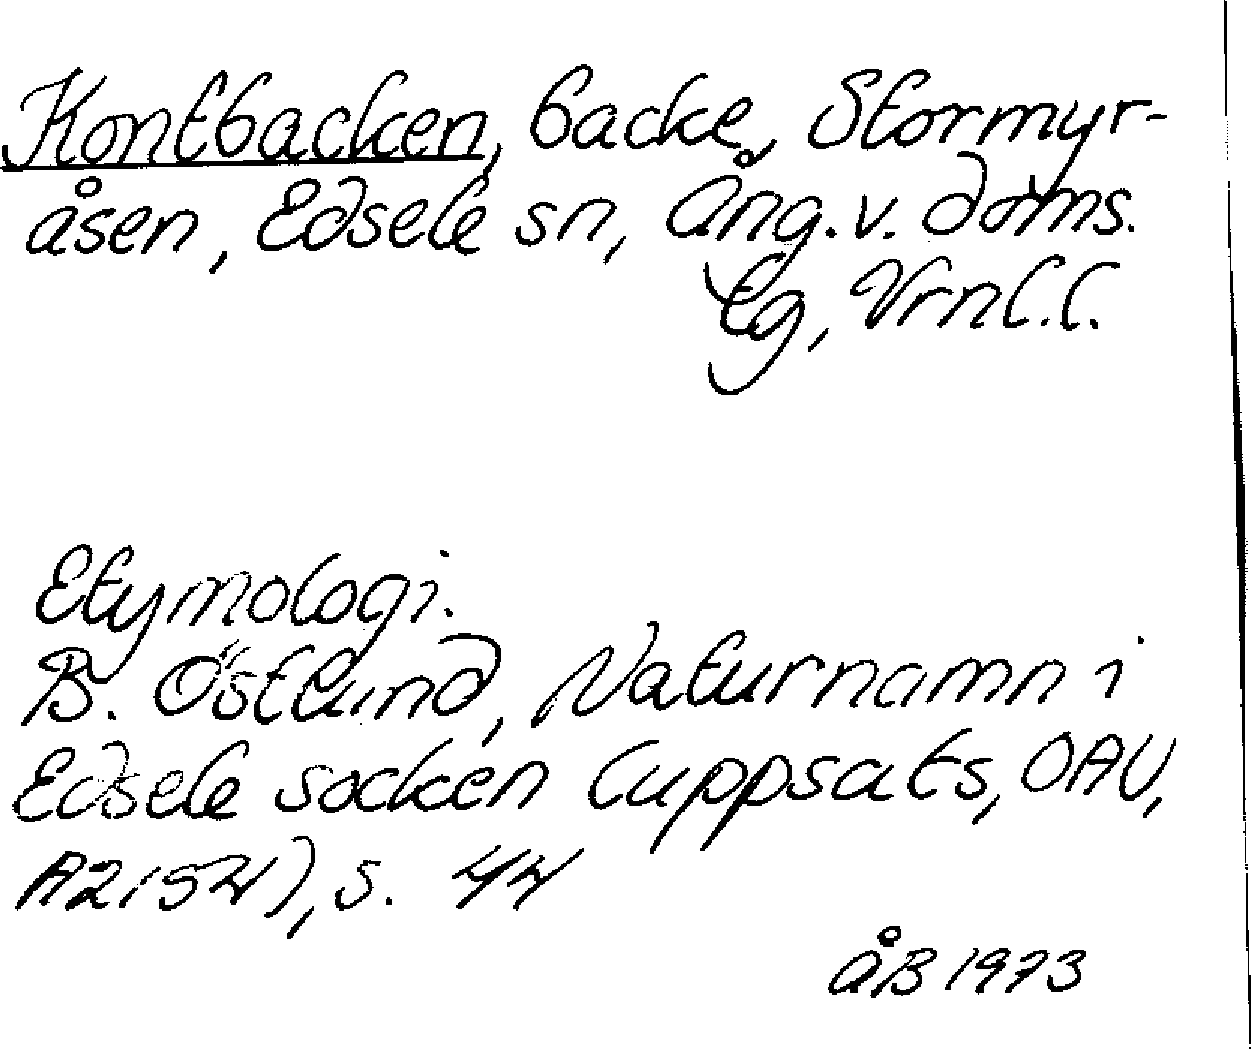 Kontbacken, backe, Stormyr-
åsen, Edsele sn, Ång. v. doms.
lg, Vrnl. l.
Etymologi.
B. Östlund, Naturnamn i
Edsele socken (uppsats, OAU,
A2154), s. 44
åB 1973